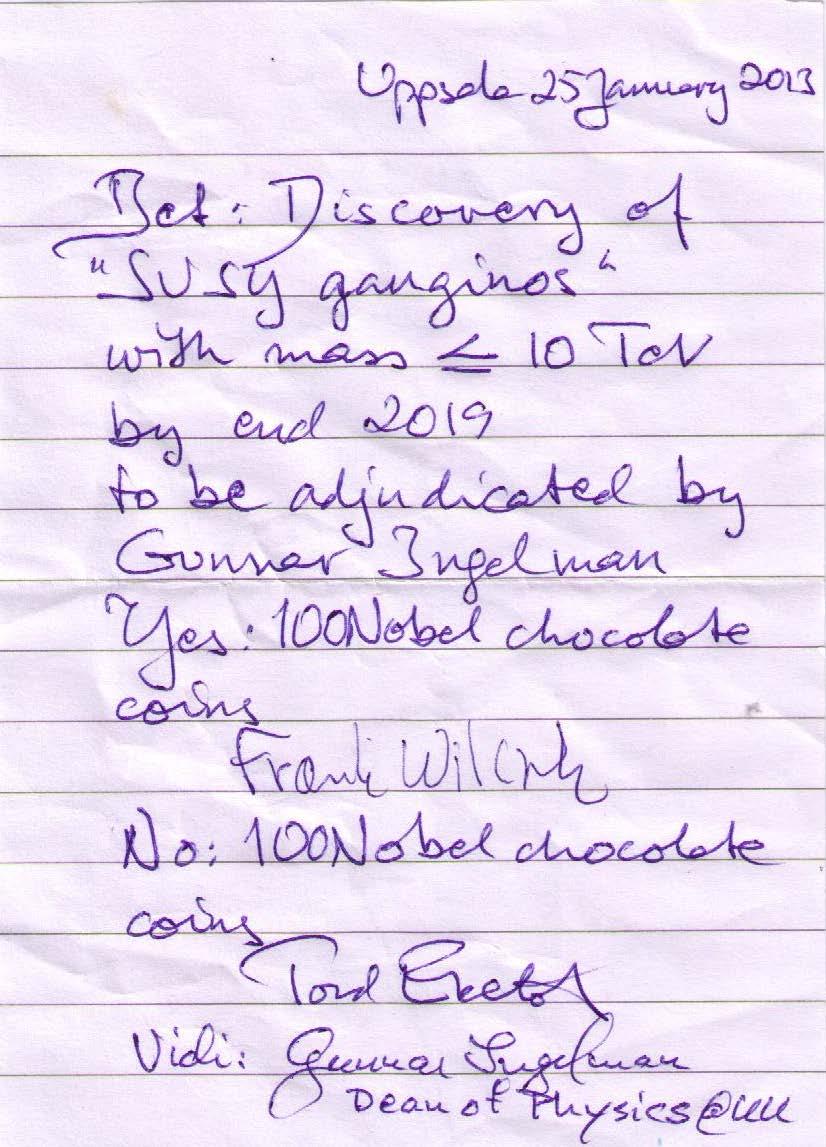 Uppsala 25 January 2013
Bet: Discovery of
"SUSY gauginos"
with mass ≤ 10 TeV
by end 2019
to be adjudicated by
Gunnar Ingelman
Yes: 100 Nobel chocolate
coins
Frank Wilczek
No: 100 Nobel chocolate
coins
Tord Ekelöf
Vidi: Gunnar Ingelman
Dean of Physics @ UU